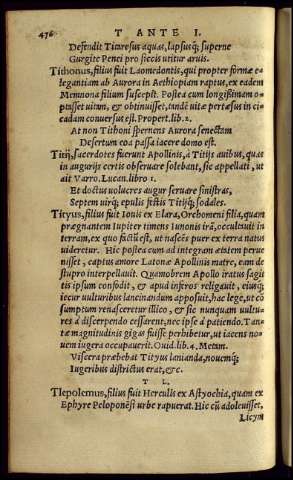 476 T ANTE I.
Defendit Titaresus aquas, lapsusq; superne
Gurgite Penei pro siccis utitur aruis.
Tithonus, filius fuit Laomedontis, qui propter formæ e-
legantiam ab Aurora in Aethiopiam raptus, ex eadem
Memnona filium suscepit. Postea cum longissimam o-
ptasset uitam, & obtinuisset, tandē uitæ pertæsus in ci-
cadam conuersus est. Propert. lib. 2.
At non Tithoni spernens Aurora senectam
Desertum eoa passa iacere domo est.
Titij, sacerdotes fuerunt Apollinis, à Titijs auibus, quas
in augurijs certis obseruare solebant, sic appellati, ut
ait Varro. Lucan. libro 1.
Et doctus uolucres augur seruare sinistras,
Septem uirq; epulis festis Titijq; sodales.
Tityus, filius fuit Iouis ex Elara, Orchomeni filia, quam
prægnantem Iupiter timens Iunonis irā, occuluit in
terram, ex quo factū est, ut nascēs puer ex terra natus
uideretur. Hic postea cum ad integram ætatem perue
nisset, captus amore Latonæ Apollinis matre, eam de
stupro interpellauit. Quamobrem Apollo iratus sagit
tis ipsum confodit, & apud inferos religauit, eiusq;
iecur uulturibus lancinandum apposuit, hac lege, ut cō
sumptum renasceretur illico, & sic nunquam uultu-
res à discerpendo cessarent, nec ipse à patiendo. Tan-
tæ magnitudinis gigas fuisse perhibetur, ut iacens no-
uem iugera occupauerit. Ouid. lib. 4. Metam.
Viscera præbebat Tityus lanianda, nouemq;
Iugeribus districtus erat, &c.
T L.
Tlepolemus, filius fuit Herculis ex Astyochia, quam ex
Ephyre Peloponēsi urbe rapuerat. Hic cū adoleuisset,
Licym